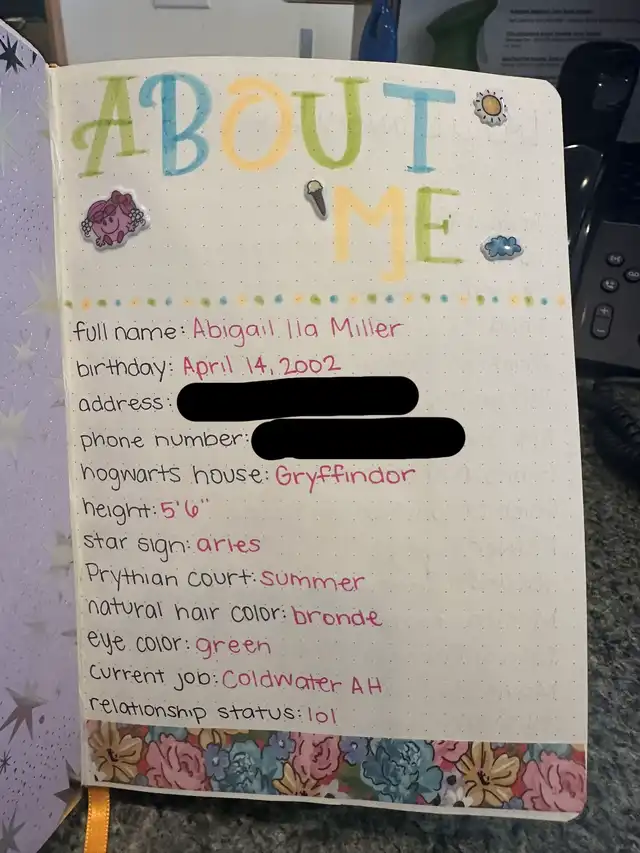 ABOUT
ME
full name: Abigail Ila Miller
birthday: April 14, 2002
address:
phone number:
hogwarts house: Gryffindor
height: 5'6"
star sign: aries
Prythian court: summer
natural hair color: bronde
eye color: green
current job: Coldwater AH
relationship status: lol